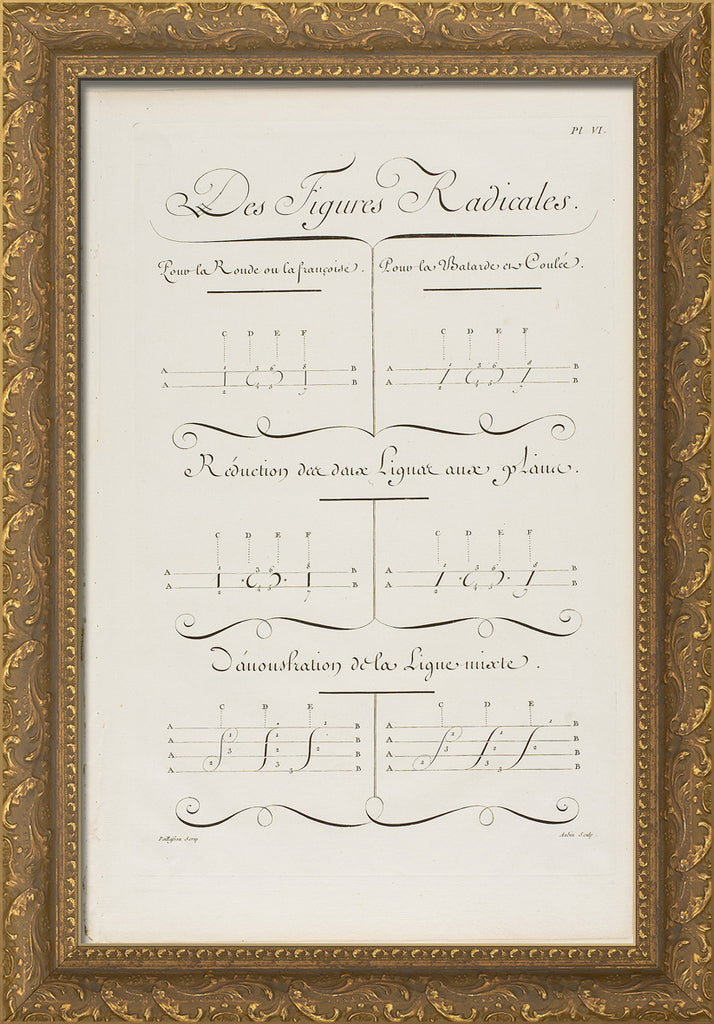 Pl VI.
Des Figures Radicales.
Pour la Ronde ou la françoise.
Pour la Batarde et Coulée.
C D E F
A 1 3 6 8 B
A 2 4 5 7 B
C D E F
A 1 3 6 8 B
A 2 4 5 7 B
Réduction des deux Lignes aux pleins.
C D E F
A 1 3 6 8 B
A 2 4 5 7 B
C D E F
A 1 3 6 8 B
A 2 4 5 7 B
Démonstration de la Ligne mixte.
C D E
A 1 B
A 1 2 B
A 3 2 B
A 2 3 3 B
C D E
A 1 B
A 2 1 B
A 3 2 2 B
A 2 3 3 B
Paillasson Scrip
Aubin Sculp.